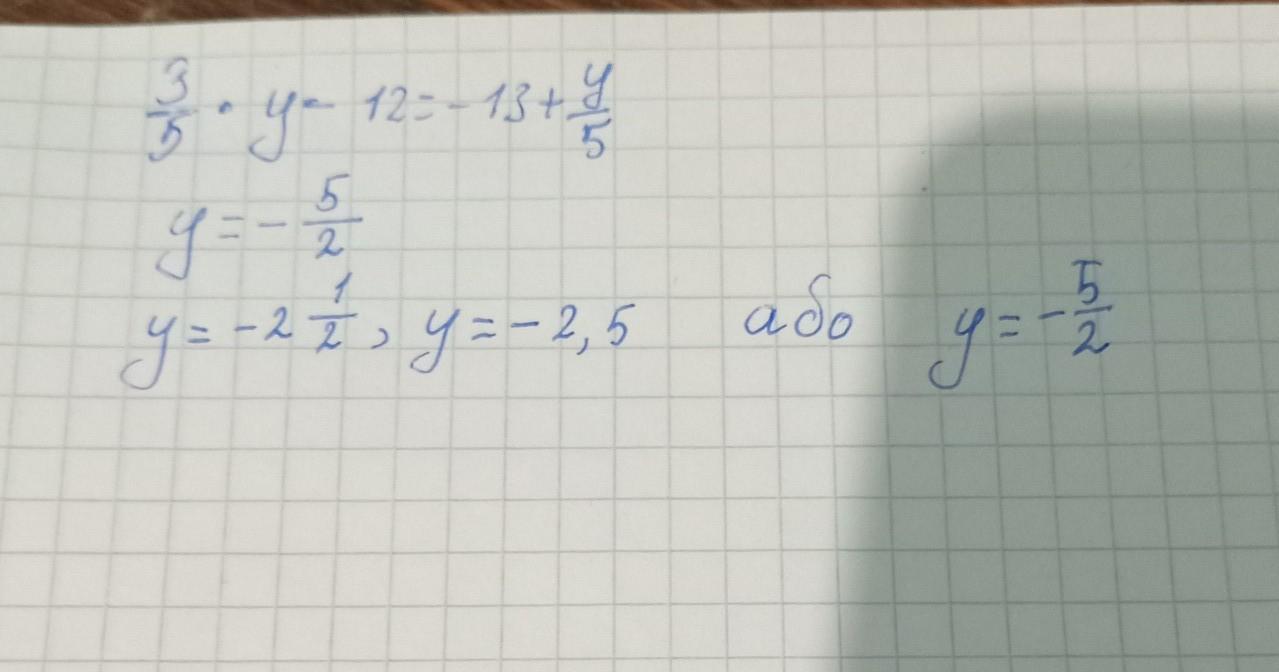 3/5 · y - 12 = -13 + y/5
y = - 5/2
y = -2 1/2, y = -2,5 або y = - 5/2